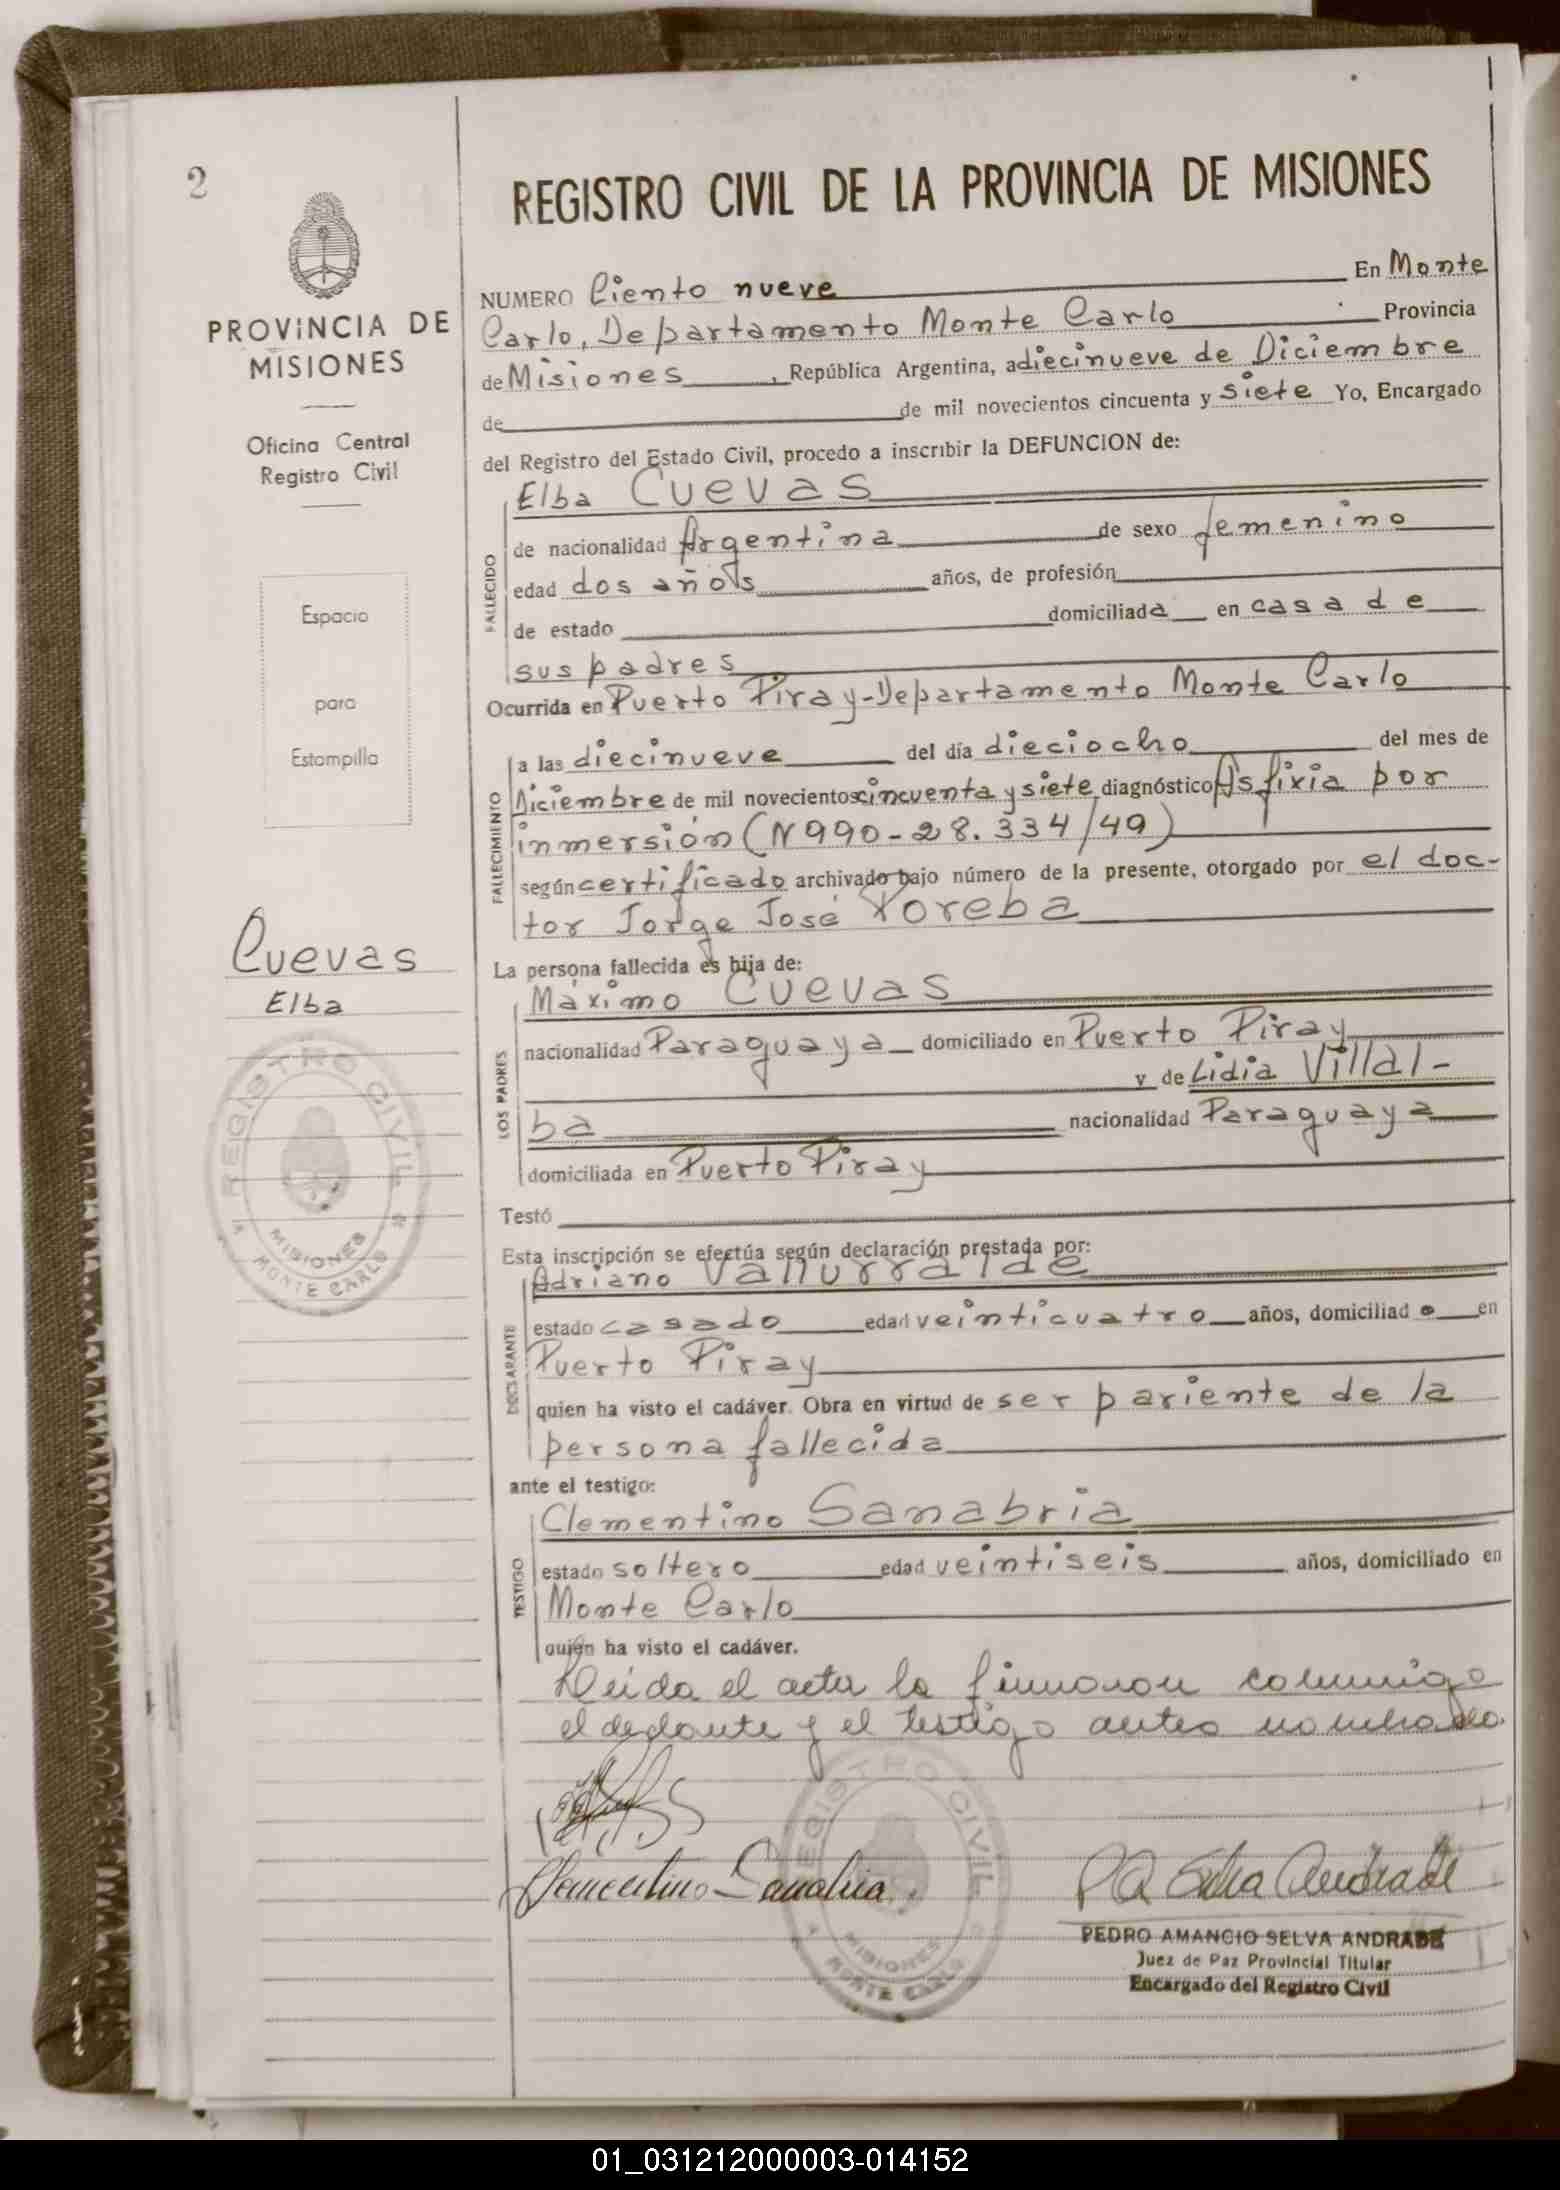 2
REGISTRO CIVIL DE LA PROVINCIA DE MISIONES
PROVINCIA DE
MISIONES
Oficina Central
Registro Civil
Espacio
para
Estampilla
Cuevas
Elba
REGISTRO CIVIL
MISIONES
MONTE CARLO
NUMERO Ciento nueve En Monte
Carlo, Departamento Monte Carlo Provincia
de Misiones, República Argentina, a diecinueve de Diciembre
de de mil novecientos cincuenta y siete Yo, Encargado
del Registro del Estado Civil, procedo a inscribir la DEFUNCION de:
FALLECIDO
Elba Cuevas
de nacionalidad Argentina de sexo femenino
edad dos años años, de profesión
de estado domiciliada en casa de
sus padres
Ocurrida en Puerto Piray-Departamento Monte Carlo
FALLECIMIENTO
a las diecinueve del día dieciocho del mes de
Diciembre de mil novecientos cincuenta y siete diagnóstico Asfixia por
inmersión (N990-28.334/49)
según certificado archivado bajo número de la presente, otorgado por el doc-
tor Jorge José Poreba
La persona fallecida es hija de:
LOS PADRES
Máximo Cuevas
nacionalidad Paraguaya domiciliado en Puerto Piray
y de Lidia Villal-
ba nacionalidad Paraguaya
domiciliada en Puerto Piray
Testó
Esta inscripción se efectúa según declaración prestada por:
DECLARANTE
Adriano Vallurralde
estado casado edad veinticuatro años, domiciliado en
Puerto Piray
quien ha visto el cadáver. Obra en virtud de ser pariente de la
persona fallecida
ante el testigo:
TESTIGO
Clementino Sanabria
estado soltero edad veintiseis años, domiciliado en
Monte Carlo
quien ha visto el cadáver.
Leida el acta la firmaron conmigo
el declante y el testigo antes nombrado.
Clementino Sanabria
REGISTRO CIVIL
MISIONES
MONTE CARLO
PA Selva Andrade
PEDRO AMANCIO SELVA ANDRADE
Juez de Paz Provincial Titular
Encargado del Registro Civil
01_031212000003-014152